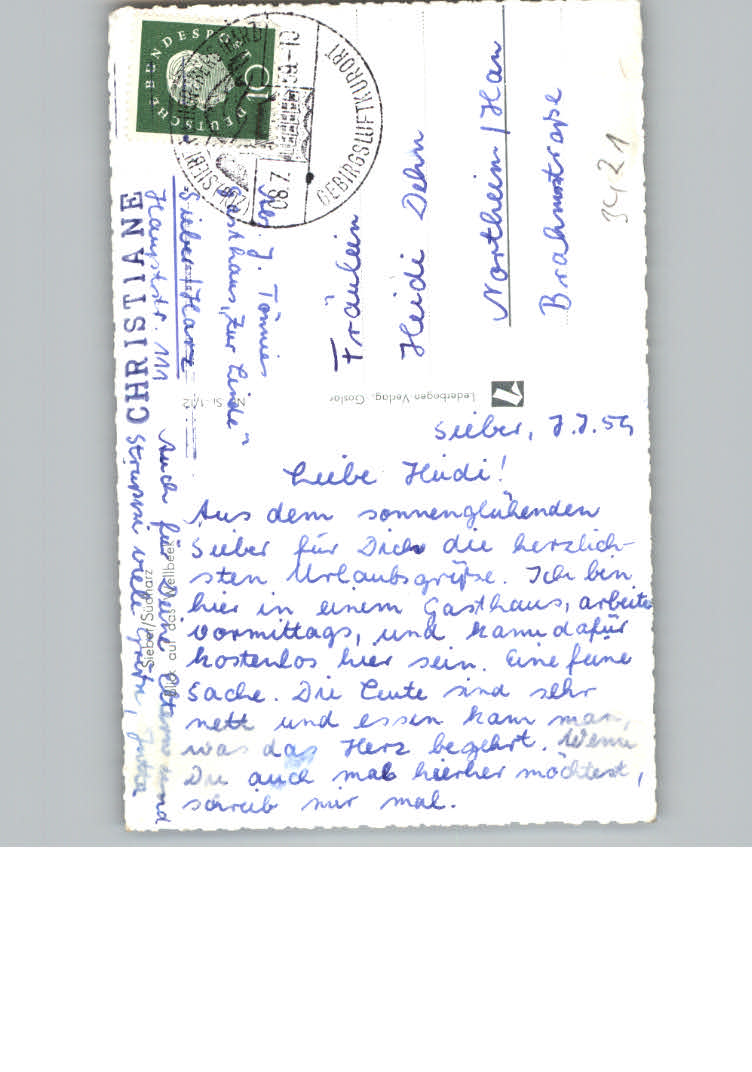 Sieber, 7.7.59
Liebe Heidi!
Aus dem sonnenglühenden
Sieber für Dich die herzlich-
sten Urlaubsgrüße. Ich bin
hier in einem Gasthaus, arbeite
vormittags, und kann dafür
kostenlos hier sein. Eine feine
Sache. Die Leute sind sehr
nett und essen kann man,
was das Herz begehrt. Wenn
Du auch mal hierher möchtest,
schreib mir mal.
Auch für Deine Eltern und
Struppi viele Grüße, Jutta
Sieber/Südharz
Blick auf das Wellbeek
CHRISTIANE
Abs. J. Tönnies
Gasthaus „Zur Linde"
Sieber/Harz
Hauptstr. 111
DEUTSCHE BUNDESPOST
10
08.7.59-10
GEBIRGSLUFTKURORT
Fräulein
Heidi Dehm
Northeim/Han
Brahmsstraße
3421
Lederbogen Verlag, Goslar